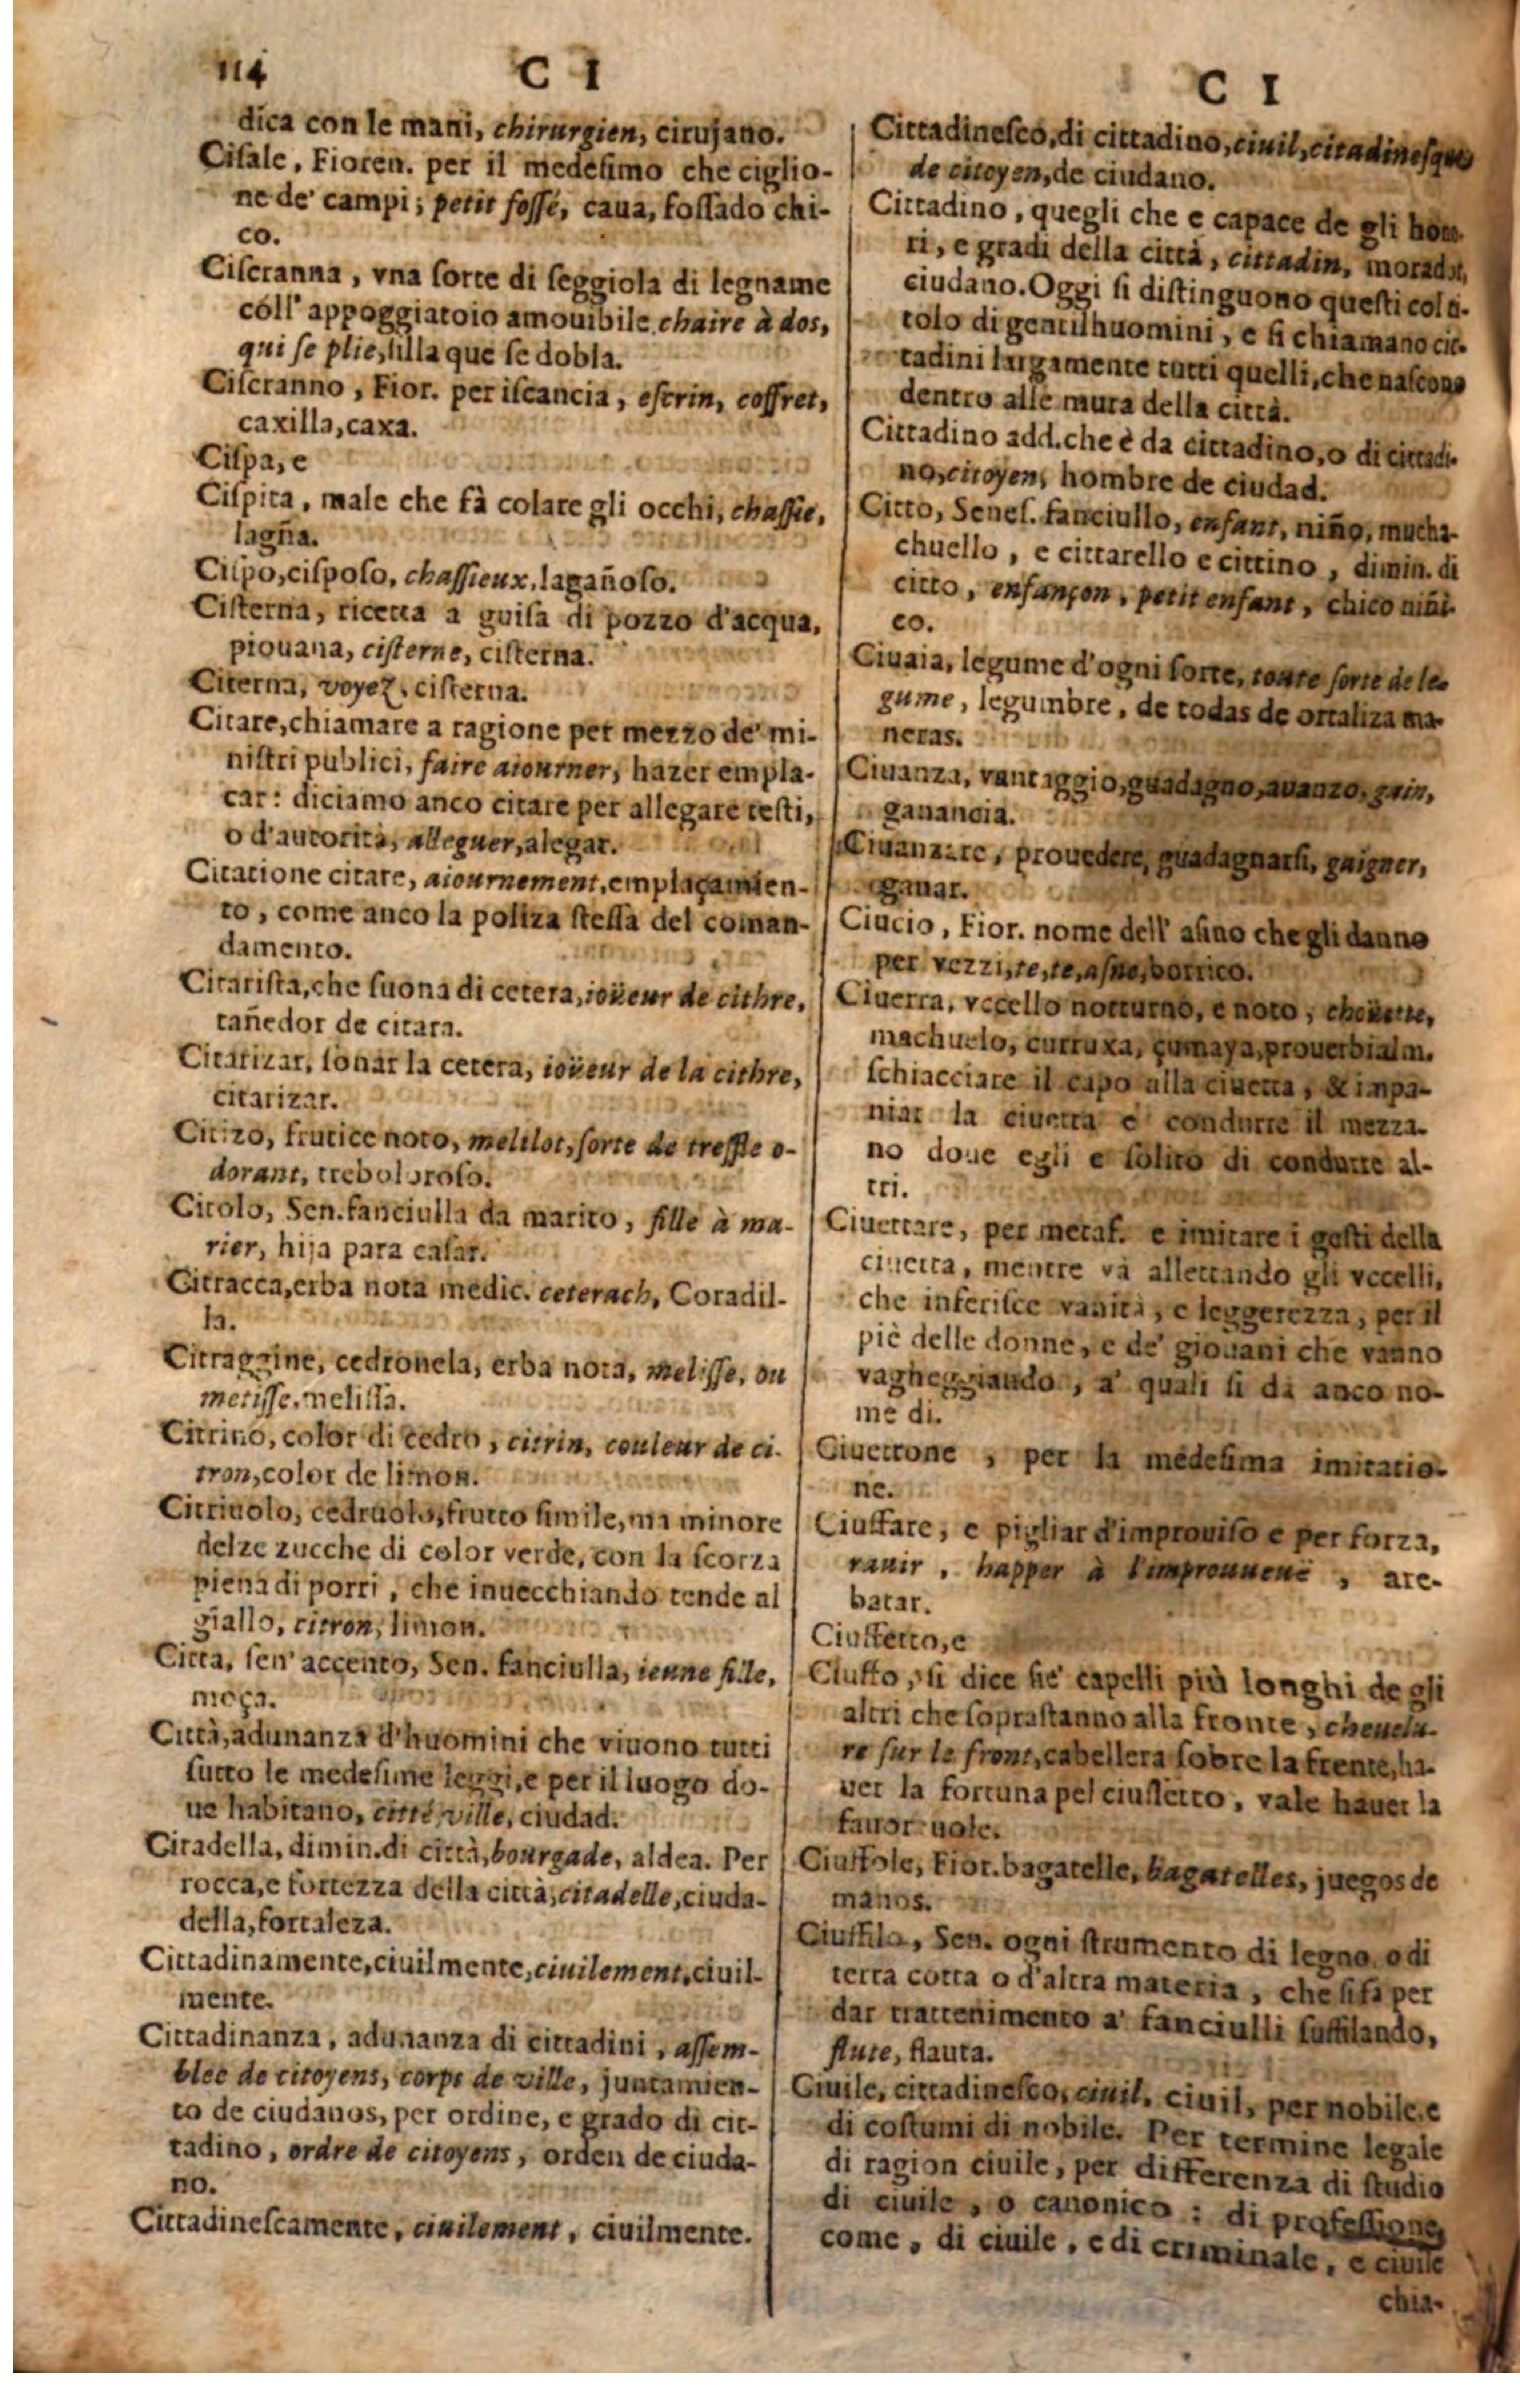 114
C I
dica con le mani, chirurgien, cirujano.
Ciſale, Fioren. per il medeſimo che ciglio-
ne de' campi; petit foſſé, caua, foſſado chi-
co.
Ciſcranna, vna ſorte di ſeggiola di legname
coll' appoggiatoio amouibile, chaire à dos,
qui ſe plie, ſilla que ſe dobla.
Ciſcranno, Fior. per iſcancia, eſcrin, coffret,
caxilla, caxa.
Ciſpa, e
Ciſpita, male che fà colare gli occhi, chaſſie,
lagña.
Ciſpo, ciſpoſo, chaſſieux, lagañoſo.
Ciſterna, ricetta a guiſa di pozzo d'acqua,
piouana, ciſterne, ciſterna.
Citerna, voyez, ciſterna.
Citare, chiamare a ragione per mezzo de' mi-
niſtri publici, faire aiourner, hazer empla-
car: diciamo anco citare per allegare teſti,
o d'autorità, alleguer, alegar.
Citatione citare, aiournement, emplaçamien-
to, come anco la poliza ſteſſa del coman-
damento.
Citariſta, che ſuona di cetera, ioüeur de cithre,
tañedor de citara.
Citarizar, ſonar la cetera, ioüeur de la cithre,
citarizar.
Citizo, frutice noto, melilot, ſorte de treffle o-
dorant, trebol oroſo.
Citolo, Sen. fanciulla da marito, fille à ma-
rier, hija para caſar.
Citracca, erba nota medic. ceterach, Coradil-
la.
Citraggine, cedronela, erba nota, meliſſe, ou
metiſſe, meliſſa.
Citrino, color di cedro, citrin, couleur de ci-
tron, color de limon.
Citriuolo, cedruolo, frutto ſimile, ma minore
delze zucche di color verde, con la ſcorza
piena di porri, che inuecchiando tende al
giallo, citron, limon.
Citta, ſen' accento, Sen. fanciulla, ieune fille,
moça.
Città, adunanza d'huomini che viuono tutti
ſutto le medeſime leggi, e per il luogo do-
ue habitano, citté, ville, ciudad.
Citadella, dimin. di città, bourgade, aldea. Per
rocca, e fortezza della città, citadelle, ciuda-
della, fortaleza.
Cittadinamente, ciuilmente, ciuilement, ciuil-
mente.
Cittadinanza, adunanza di cittadini, aſſem-
blee de citoyens, corps de ville, juntamien-
to de ciudanos, per ordine, e grado di cit-
tadino, ordre de citoyens, orden de ciuda-
no.
Cittadineſcamente, ciuilement, ciuilmente.
C I
Cittadineſco, di cittadino, ciuil, citadineſque
de citoyen, de ciudano.
Cittadino, quegli che e capace de gli hono-
ri, e gradi della città, cittadin, morador,
ciudano. Oggi ſi diſtinguono queſti col ti-
tolo di gentilhuomini, e ſi chiamano cit-
tadini largamente tutti quelli, che naſcono
dentro alle mura della città.
Cittadino add. che è da cittadino, o di cittadi-
no, citoyen, hombre de ciudad.
Citto, Seneſ. fanciullo, enfant, niño, mucha-
chuello, e cittarello e cittino, dimin. di
citto, enfançon, petit enfant, chico niñi-
co.
Ciuaia, legume d'ogni ſorte, toute ſorte de le-
gume, legumbre, de todas de ortaliza ma-
neras.
Ciuanza, vantaggio, guadagno, auanzo, gain,
ganancia.
Ciuanzare, prouedere, guadagnarſi, gaigner,
ganar.
Ciucio, Fior. nome dell' aſino che gli danno
per vezzi, te, te, aſne, borrico.
Ciuetta, vccello notturno, e noto, choüette,
machuelo, curruxa, çumaya, prouerbialm.
ſchiacciare il capo alla ciuetta, & impa-
niar la ciuetta e' condurre il mezza-
no doue egli e ſolito di condurre al-
tri.
Ciuettare, per metaf. e imitare i geſti della
ciuetta, mentre và allettando gli vccelli,
che inferiſce vanità, e leggerezza, per il
piè delle donne, e de' giouani che vanno
vagheggiando, a' quali ſi da anco no-
me di.
Ciuettone, per la medeſima imitatio-
ne.
Ciuffare, e pigliar d'improuiſo e per forza,
rauir, happer à l'improuueuë, are-
batar.
Ciuffetto, e
Ciuffo, ſi dice ſie' capelli più longhi de gli
altri che ſopraſtanno alla fronte, cheuelu-
re ſur le front, cabellera ſobre la frente, ha-
uer la fortuna pel ciuffetto, vale hauer la
fauor uole.
Ciuffole, Fior. bagatelle, bagatelles, juegos de
manos.
Ciuffilo, Sen. ogni ſtrumento di legno, o di
terra cotta o d'altra materia, che ſi fà per
dar trattenimento a' fanciulli ſuffilando,
flute, flauta.
Ciuile, cittadineſco, ciuil, ciuil, per nobile, e
di coſtumi di nobile. Per termine legale
di ragion ciuile, per differenza di ſtudio
di ciuile, o canonico: di profeſſione,
come, di ciuile, e di criminale, e ciuile
chia-